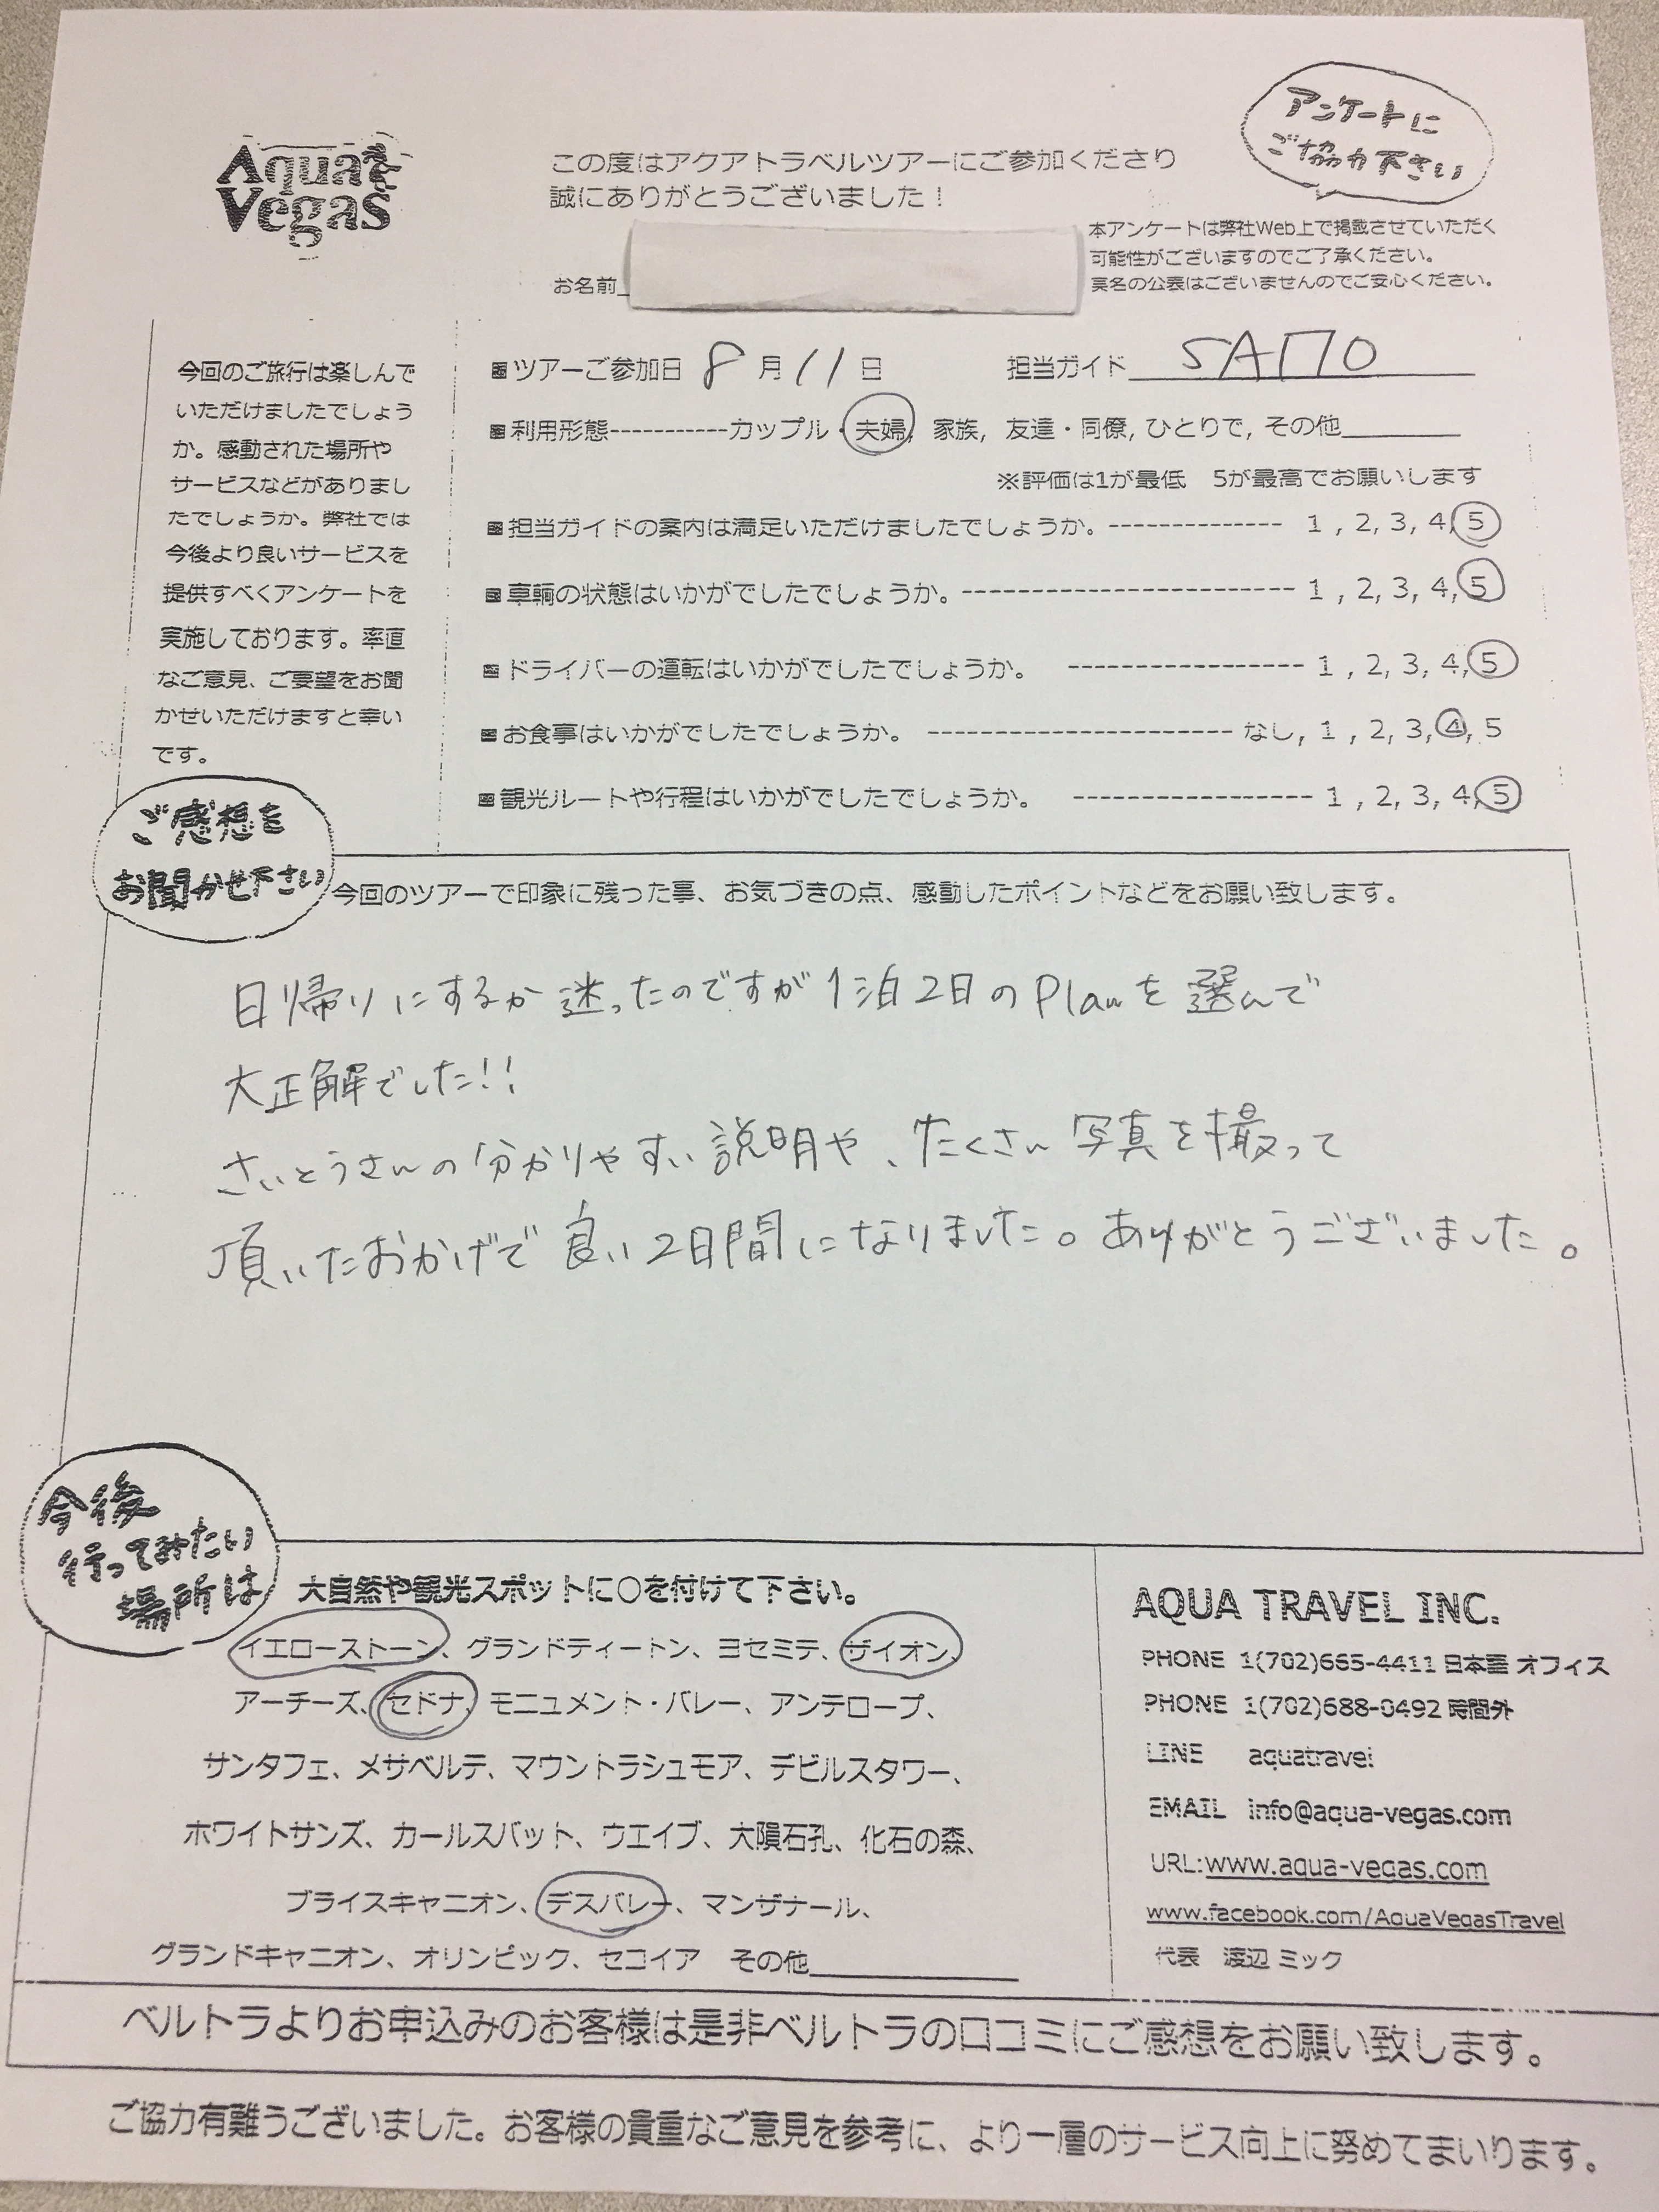 Aqua
Vegas
この度はアクアトラベルツアーにご参加くださり
誠にありがとうございました！
アンケートに
ご協力下さい
本アンケートは弊社Web上で掲載させていただく
可能性がございますのでご了承ください。
実名の公表はございませんのでご安心ください。
お名前
今回のご旅行は楽しんで
いただけましたでしょう
か。感動された場所や
サービスなどがありまし
たでしょうか。弊社では
今後より良いサービスを
提供すべくアンケートを
実施しております。率直
なご意見、ご要望をお聞
かせいただけますと幸い
です。
■ツアーご参加日 8月11日 担当ガイド SAITO
■利用形態-----------カップル・夫婦, 家族, 友達・同僚, ひとりで, その他
※評価は1が最低 5が最高でお願いします
■担当ガイドの案内は満足いただけましたでしょうか。-------------- 1 , 2, 3, 4, 5
■車輌の状態はいかがでしたでしょうか。------------------------ 1 , 2, 3, 4, 5
■ドライバーの運転はいかがでしたでしょうか。 ----------------- 1 , 2, 3, 4, 5
■お食事はいかがでしたでしょうか。 ---------------------- なし, 1 , 2, 3, 4, 5
■観光ルートや行程はいかがでしたでしょうか。 ----------------- 1 , 2, 3, 4, 5
ご感想を
お聞かせ下さい
今回のツアーで印象に残った事、お気づきの点、感動したポイントなどをお願い致します。
日帰りにするか迷ったのですが1泊2日のPlanを選んで
大正解でした!!
さいとうさんの分かりやすい説明や、たくさん写真を撮って
頂いたおかげで良い2日間になりました。ありがとうございました。
今後
行ってみたい
場所は
大自然や観光スポットに○を付けて下さい。
イエローストーン、グランドティートン、ヨセミテ、ザイオン、
アーチーズ、セドナ、モニュメント・バレー、アンテロープ、
サンタフェ、メサベルテ、マウントラシュモア、デビルスタワー、
ホワイトサンズ、カールスバット、ウエイブ、大隕石孔、化石の森、
ブライスキャニオン、デスバレー、マンザナール、
グランドキャニオン、オリンピック、セコイア その他
AQUA TRAVEL INC.
PHONE 1(702)665-4411 日本語 オフィス
PHONE 1(702)688-0492 時間外
LINE aquatravel
EMAIL info@aqua-vegas.com
URL:www.aqua-vegas.com
www.facebook.com/AquaVegasTravel
代表 渡辺 ミック
ベルトラよりお申込みのお客様は是非ベルトラの口コミにご感想をお願い致します。
ご協力有難うございました。お客様の貴重なご意見を参考に、より一層のサービス向上に努めてまいります。